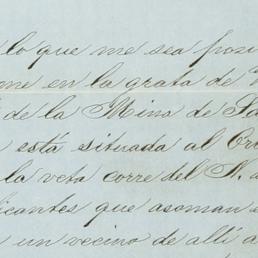 lo que me sea posi
me en la grata de
de la Mina de
está situada al Or
la veta corre del N.
icantes que asoman
un vecino de allí